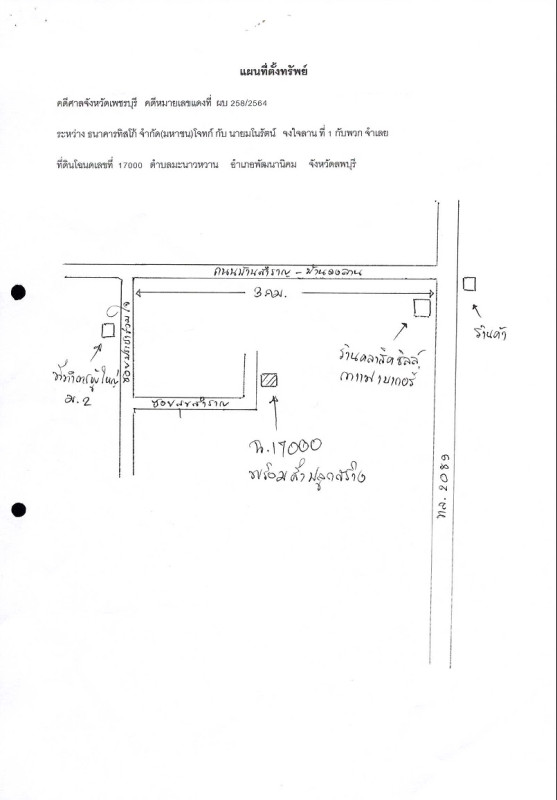 แผนที่ตั้งทรัพย์
คดีศาลจังหวัดเพชรบุรี คดีหมายเลขแดงที่ ผบ 258/2564
ระหว่าง ธนาคารทิสโก้ จำกัด(มหาชน)โจทก์ กับ นายมโนรัตน์ จงใจลาน ที่ 1 กับพวก จำเลย
ที่ดินโฉนดเลขที่ 17000 ตำบลมะนาวหวาน อำเภอพัฒนานิคม จังหวัดลพบุรี
ถนนบ้านสำราญ - บ้านดงลาน
3 คม.
ร้านค้า
ร้านคลาสิคฮิลล์
กาแฟ เบเกอรี่
ที่ทำการผู้ใหญ่
ม.2
ซอย
ซอยสุขสำราญ
ฉ.17000
พร้อมสิ่งปลูกสร้าง
ทล. 2089